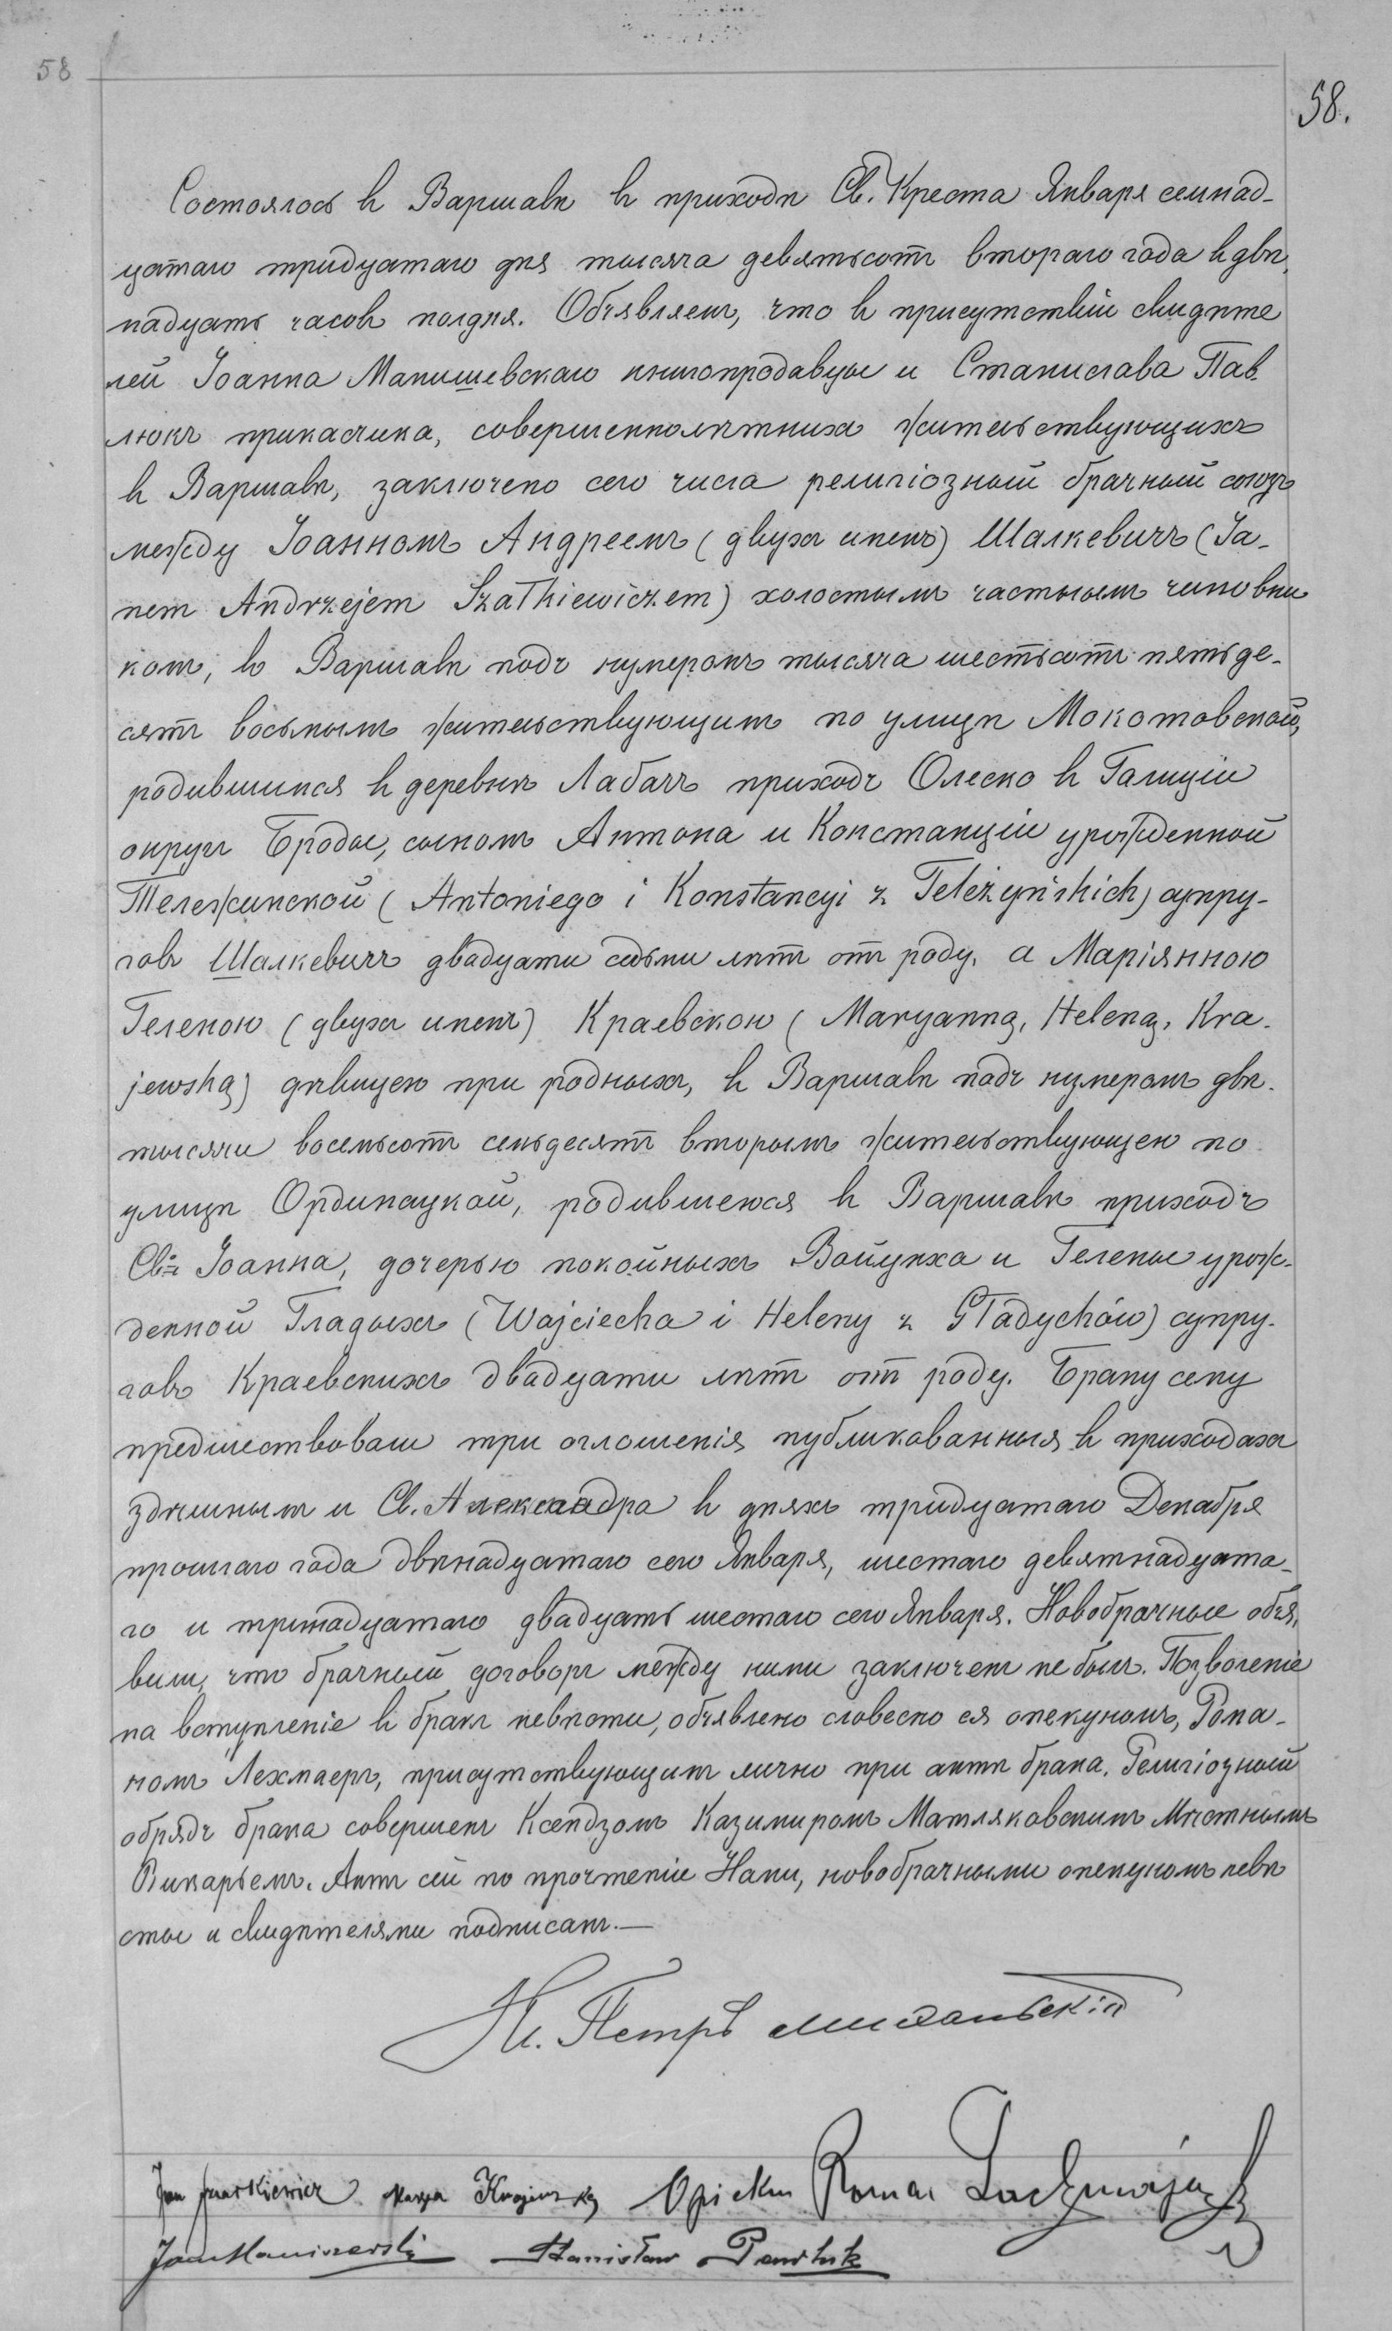 58
58.
Состоялось въ Варшавѣ въ приходѣ Св. Креста Января семнад-
цатаго тридцатаго дня тысяча девятьсотъ втораго года въ двѣ-
надцать часовъ полдня. Объявляемъ, что въ присутствіи свидѣте
лей Іоанна Манишевскаго книгопродавцы и Станислава Пав
люкъ прикасчика, совершеннолѣтнихъ жительствующихъ
въ Варшавѣ, заключено сего числа религіозный брачный союзъ
между Іоанномъ Андреемъ (двухъ именъ) Шалкевичъ (Ja-
nem Andrzejem Szałkiewiczem) холостымъ частнымъ чиновни
комъ, въ Варшавѣ подъ нумеромъ тысяча шестьсотъ пятьде-
сятъ восьмымъ жительствующимъ по улицѣ Мокотовской,
родившимся въ деревнѣ Лабачъ приходъ Олеско въ Галиціи
округъ Броды, сыномъ Антона и Констанціи урожденной
Тележинской (Antoniego i Konstancyi z Teleżyńskich) супру-
говъ Шалкевичъ двадцати седьми лѣтъ отъ роду, а Маріянною
Геленою (двухъ именъ) Краевскою (Maryanną, Heleną, Kra-
jewską) дѣвицею при родныхъ, въ Варшавѣ подъ нумеромъ двѣ-
тысячи восемьсотъ семьдесятъ вторымъ жительствующею по
улицѣ Ординацкой, родившеюся въ Варшавѣ приходъ
Св. Іоанна, дочерью покойныхъ Войцѣха и Гелены урож-
денной Гладыхъ (Wojciecha i Heleny z Gładychów) супру-
говъ Краевскихъ двадцати лѣтъ отъ роду. Браку сему
предшествовали три оглошенія публикованныя въ приходахъ
здѣшнымъ и Св. Александра въ дняхъ тридцатаго Декабря
прошлаго года двѣнадцатаго сего Января, шестаго девятнадцата-
го и тринадцатаго двадцать шестаго сего Января. Новобрачные объя-
вили, что брачный договоръ между ними заключенъ не былъ. Позволеніе
на вступленіе въ бракъ невѣсты, объявлено словесно ея опекуномъ, Рома-
номъ Лехмаеръ, присутствующимъ лично при актѣ брака. Религіозный
обрядъ брака совершенъ Ксендзомъ Казимиромъ Матляковскимъ Мѣстнымъ
Викарьемъ. Актъ сей по прочтеніе Нами, новобрачными опекуномъ невѣ
сты и свидѣтелями подписанъ.—
Кс. Петръ
Jan Szałkiewicz Marya Krajewska Opiekun Roman
Jan Maniszewski Stanisław Pawluk